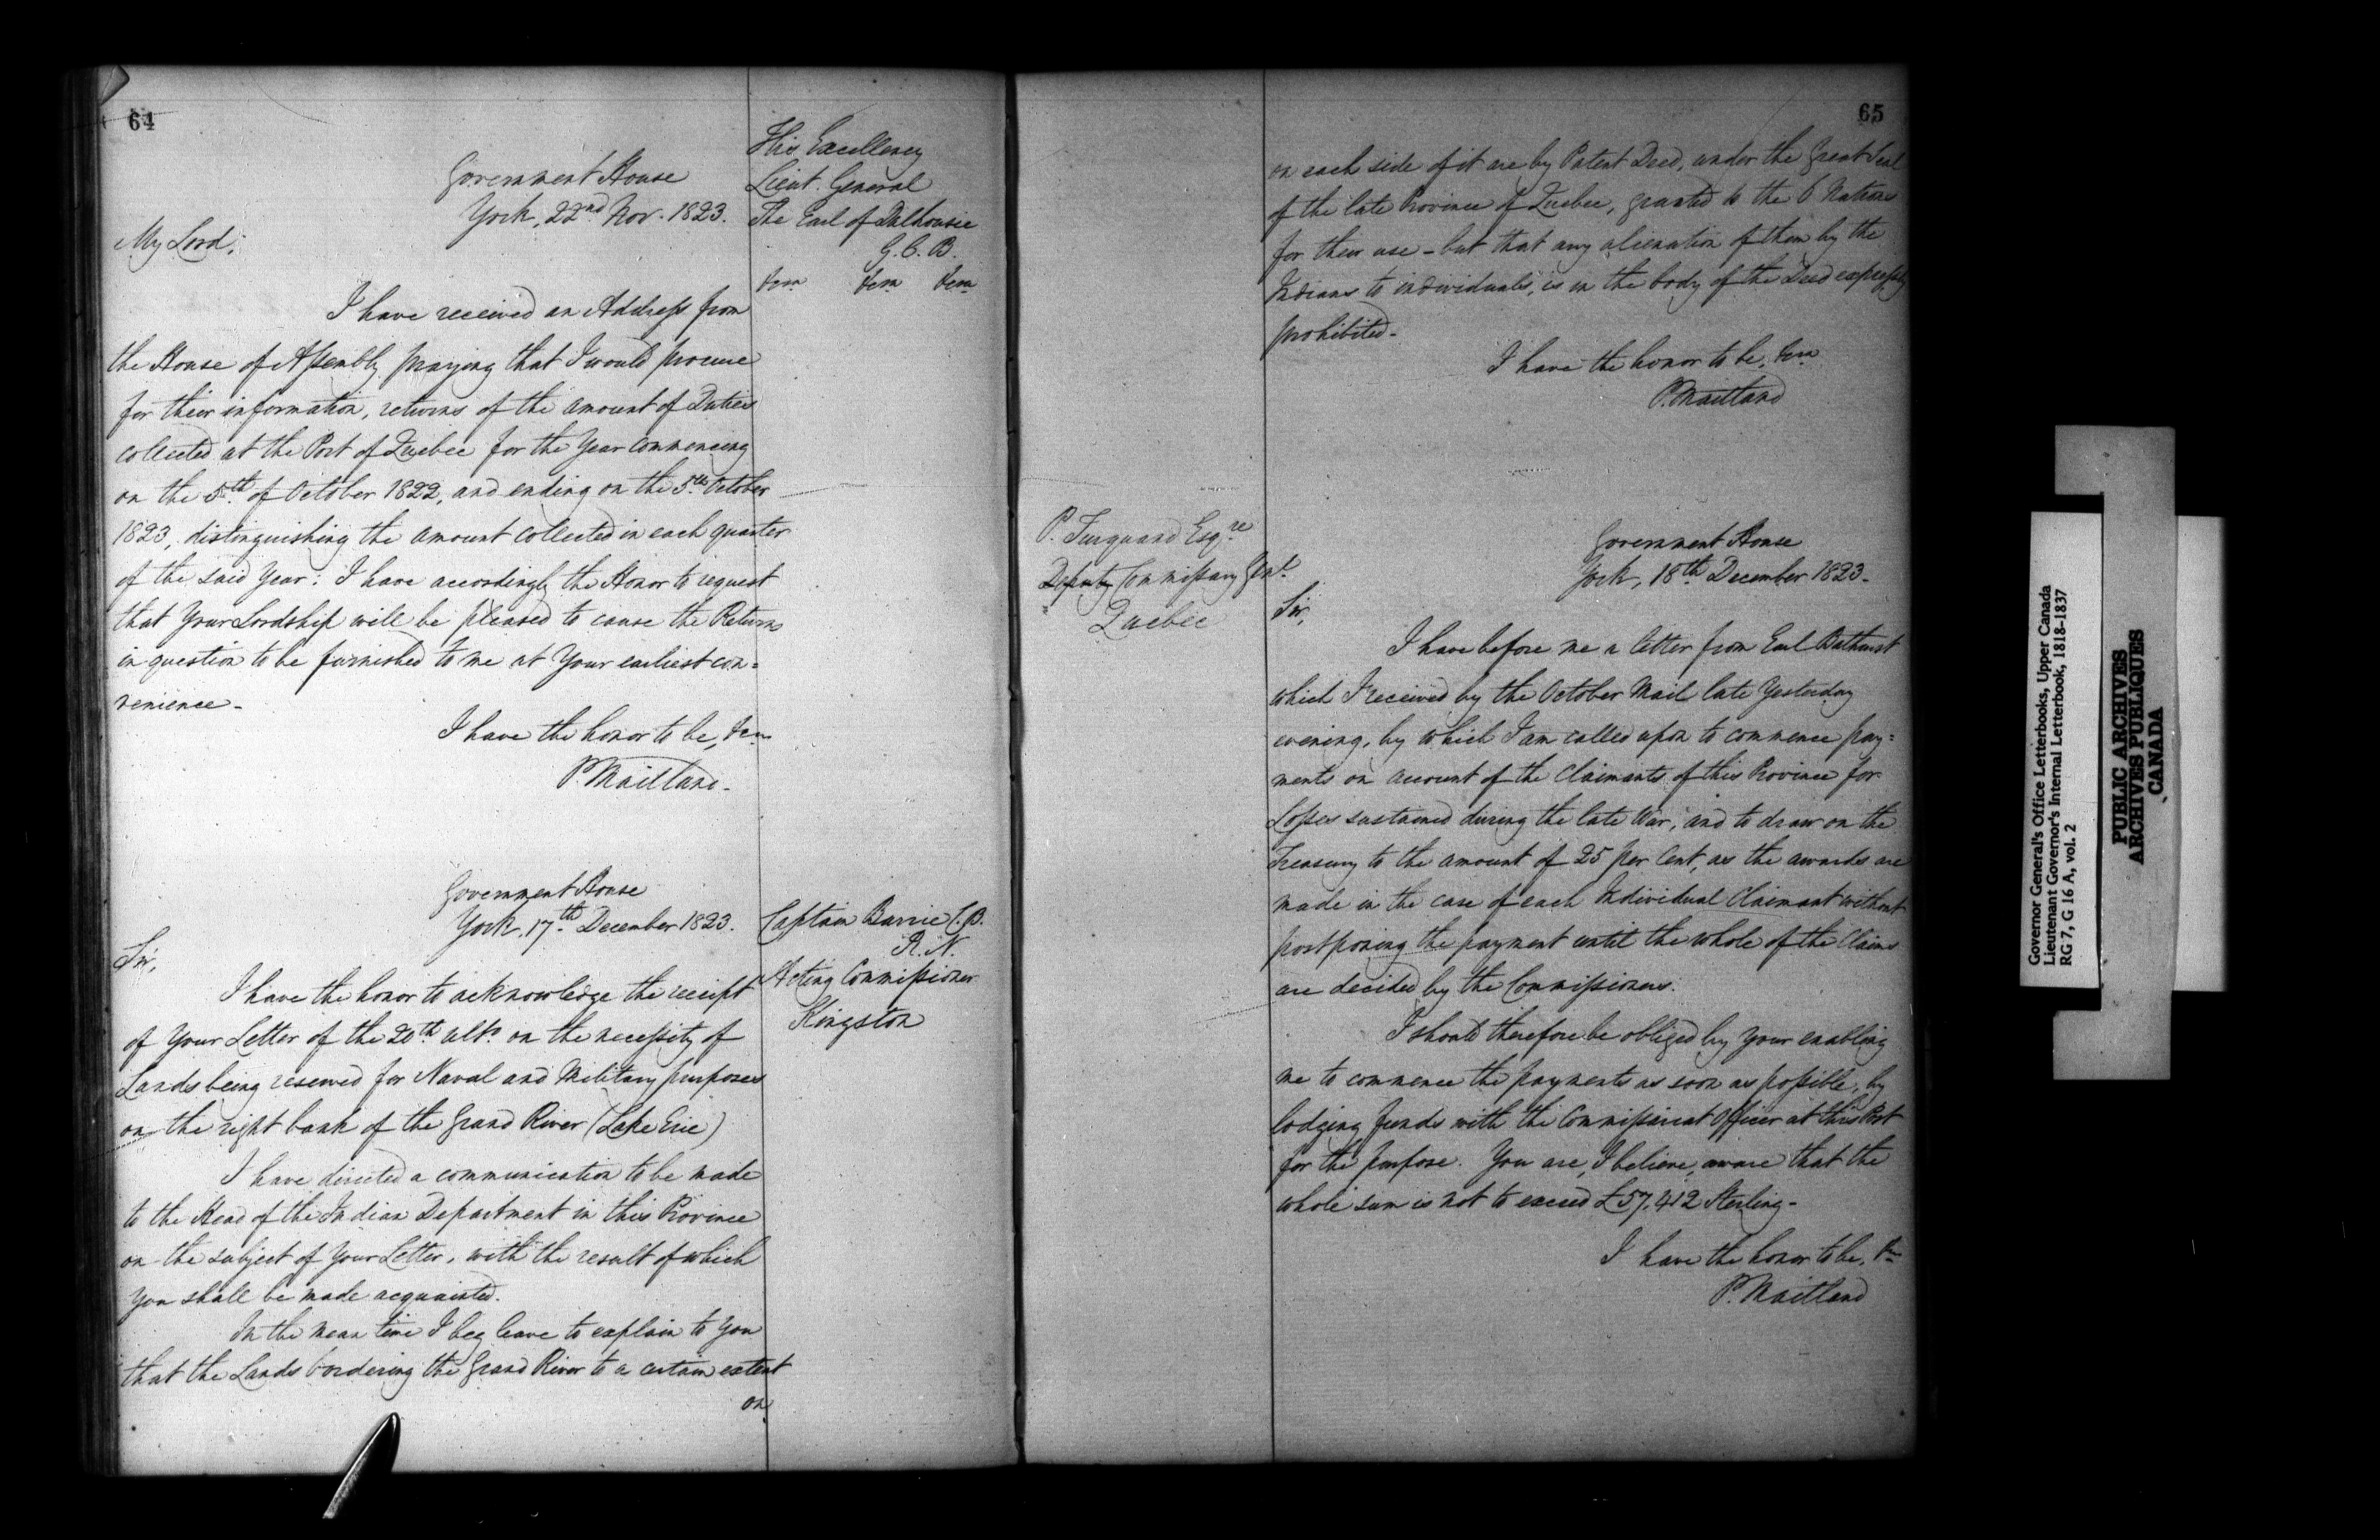 64
Government House
York, 22nd Nov. 1823.
His Excellency
Lieut. General
The Earl of Dalhousie
G.C.B.
&c &c &c
My Lord,
I have received an Address from
the House of Assembly praying that I would procure
for their information, returns of the amount of Duties
collected at the Port of Quebec for the Year commencing
on the 5th of October 1822, and ending on the 5th October
1823, distinguishing the amount collected in each quarter
of the said Year. I have accordingly the Honor to request
that Your Lordship will be pleased to cause the Returns
in question to be furnished to me at Your earliest con=
venience -
I have the honor to be, &c
P. Maitland -
Government House
York, 17th December 1823.
Captain Barrie C.B.
R.N.
Acting Commissioner
Kingston
Sir,
I have the honor to acknowledge the receipt
of Your Letter of the 20th ulto on the necessity of
Lands being reserved for Naval and Military purposes
on the right bank of the Grand River (Lake Erie)
I have directed a communication to be made
to the Head of the Indian Department in this Province
on the subject of Your Letter, with the result of which
You shall be made acquainted.
In the mean time I beg leave to explain to You
that the Lands bordering the Grand River to a certain extent
on
65
on each side of it are by Patent Deed, under the Great Seal
of the late Province of Quebec, granted to the 6 Nations
for their use - but that any alienation of them by the
Indians to individuals, is in the body of the Deed expressly
prohibited -
I have the honor to be, &c
P. Maitland
P. Turquand Esqre
Deputy Commissary Genl.
Quebec
Government House
York, 18th December 1823 -
Sir,
I have before me a letter from Earl Bathurst
which I received by the October Mail late Yesterday
evening, by which I am called upon to commence pay=
ments on account of the Claimants of this Province for
Losses sustained during the late War, and to draw on the
Treasury to the amount of 25 per Cent, as the awards are
made in the case of each Individual Claimant without
postponing the payment until the whole of the Claims
are decided by the Commissioners.
I should therefore be obliged by Your enabling
me to commence the payments as soon as possible, by
lodging funds with the Commissariat Officer at this Post
for the purpose. You are, I believe, aware that the
whole sum is not to exceed £57,412 Sterling -
I have the honor to be, &c
P. Maitland
Governor General's Office Letterbooks, Upper Canada
Lieutenant Governor's Internal Letterbook, 1818-1837
RG 7, G 16 A, vol. 2
PUBLIC ARCHIVES
ARCHIVES PUBLIQUES
CANADA